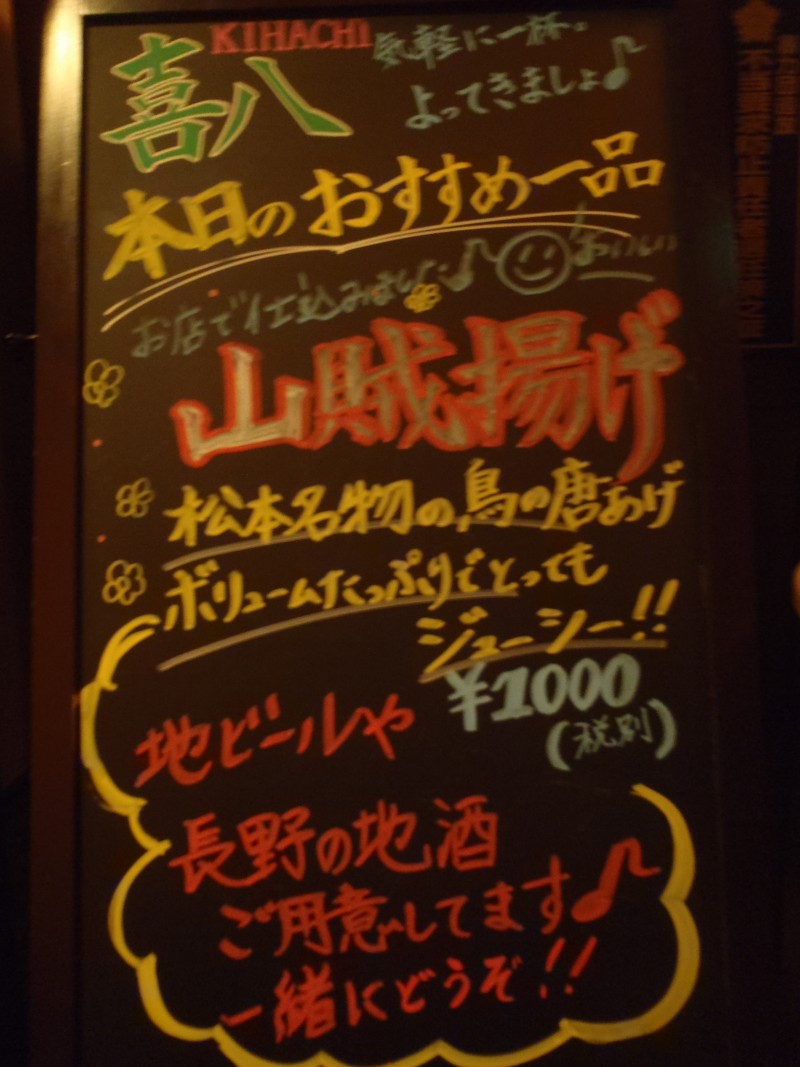 KIHACHI
喜八
気軽に一杯。
よってきましょ♪
本日のおすすめ一品
お店で仕込みました♪
おいしい
山賊揚げ
松本名物の鳥の唐あげ
ボリュームたっぷりでとっても
ジューシー!!
¥1000
(税別)
地ビールや
長野の地酒
ご用意してます♪
一緒にどうぞ!!